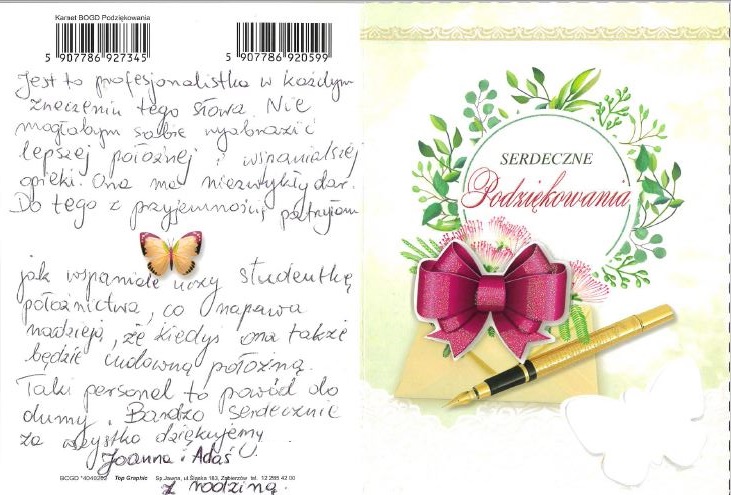 Karnet BOGD Podziękowania
5 907786 927345
5 907786 920599
Jest to profesjonalistka w każdym
znaczeniu tego słowa. Nie
mogłabym sobie wyobrazić
lepszej położnej i wspanialszej
opieki. Ona ma niezwykły dar.
Do tego z przyjemnością patrzyłam
jak wspaniale uczy studentkę
położnictwa, co napawa
nadzieją, że kiedyś ona także
będzie cudowną położną.
Taki personel to powód do
dumy. Bardzo serdecznie
za wszystko dziękujemy
Joanna i Adaś
z rodziną.
BCGD *4040202 Top Graphic Sp.Jawna, ul.Śląska 183, Zabierzów tel. 12 285 42 00
SERDECZNE
Podziękowania